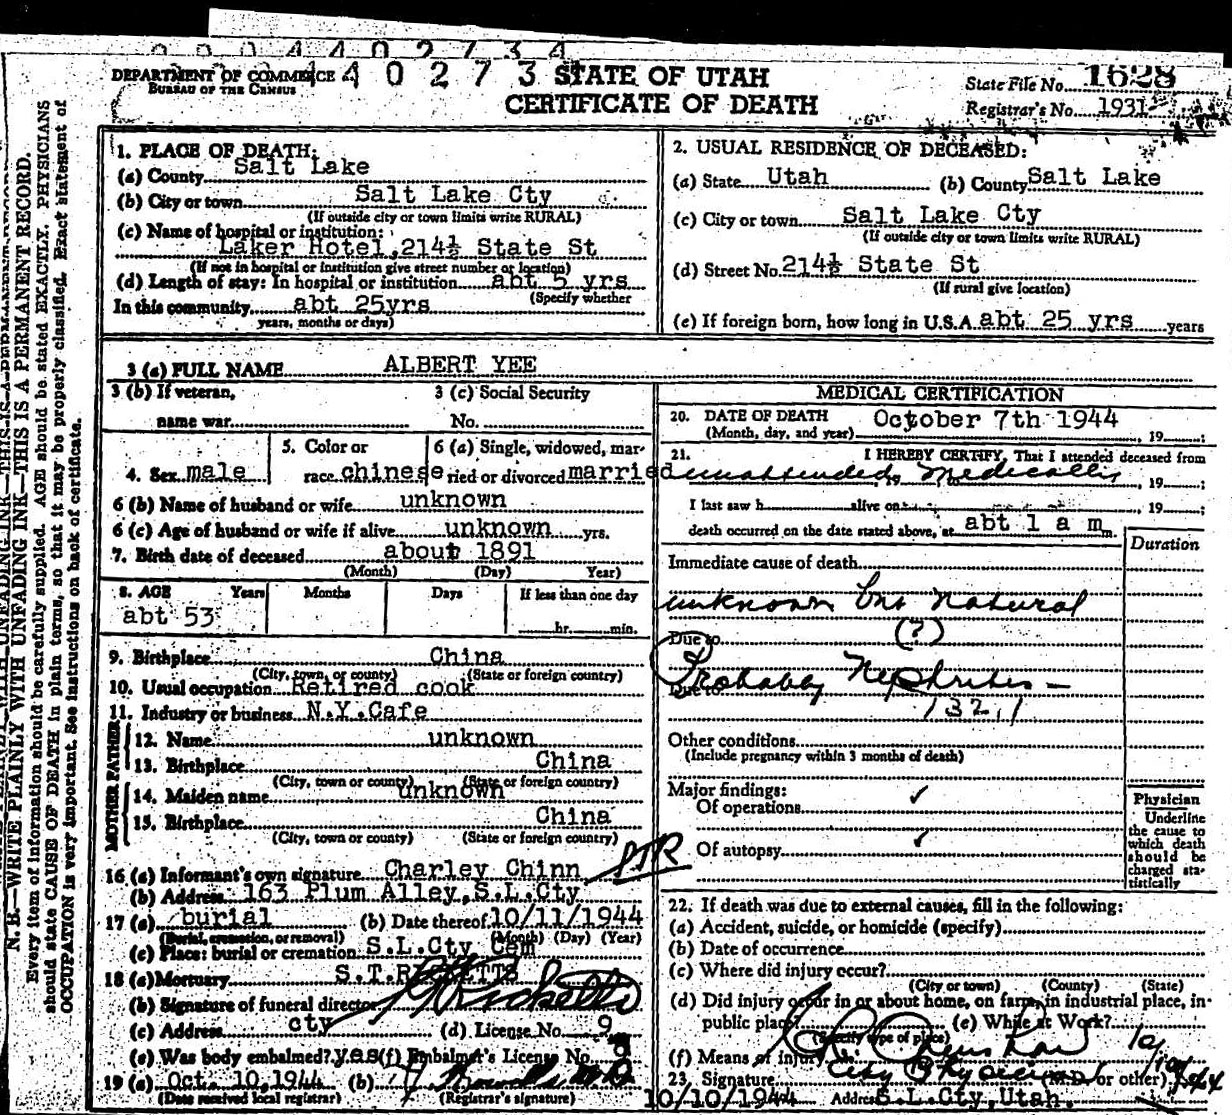 4 4 0 2 7 3 4
DEPARTMENT OF COMMERCE 4 0 2 7 3 STATE OF UTAH
BUREAU OF THE CENSUS
CERTIFICATE OF DEATH
State File No. 1628
Registrar's No. 1931
N. B.—WRITE PLAINLY WITH UNFADING INK—THIS IS A PERMANENT RECORD.
Every item of information should be carefully supplied. AGE should be stated EXACTLY. PHYSICIANS
should state CAUSE OF DEATH in plain terms, so that it may be properly classified. Exact statement of
OCCUPATION is very important. See instructions on back of certificate.
1. PLACE OF DEATH:
(a) County Salt Lake
(b) City or town Salt Lake Cty
(If outside city or town limits write RURAL)
(c) Name of hospital or institution:
Laker Hotel, 214½ State St
(If not in hospital or institution give street number or location)
(d) Length of stay: In hospital or institution abt 5 yrs
(Specify whether
In this community abt 25yrs
years, months or days)
2. USUAL RESIDENCE OF DECEASED:
(a) State Utah (b) County Salt Lake
(c) City or town Salt Lake Cty
(If outside city or town limits write RURAL)
(d) Street No. 214½ State St
(If rural give location)
(e) If foreign born, how long in U.S.A. abt 25 yrs years
3 (a) FULL NAME ALBERT YEE
3 (b) If veteran, 3 (c) Social Security
name war No.
4. Sex male 5. Color or race chinese 6 (a) Single, widowed, married or divorced married
6 (b) Name of husband or wife unknown
6 (c) Age of husband or wife if alive unknown yrs.
7. Birth date of deceased about 1891
(Month) (Day) Year)
8. AGE Years Months Days If less than one day
abt 53 hr. min.
9. Birthplace China
(City, town, or county) (State or foreign country)
10. Usual occupation Retired cook
11. Industry or business N.Y.Cafe
FATHER
12. Name unknown
13. Birthplace China
(City, town or county) (State or foreign country)
MOTHER
14. Maiden name unknown
15. Birthplace China
(City, town or county) (State or foreign country)
16 (a) Informant's own signature Charley Chinn
(b) Address 163 Plum Alley, S.L.Cty
17 (a) burial (b) Date thereof 10/11/1944
(Burial, cremation, or removal) (Month) (Day) (Year)
(c) Place: burial or cremation S.L.Cty Cem
18 (a) Mortuary S.T.RICKETTS
(b) Signature of funeral director Ricketts
(c) Address cty (d) License No. 9
(e) Was body embalmed? yes (f) Embalmer's License No. 9
19 (a) Oct. 10, 1944 (b)
(Date received local registrar) (Registrar's signature)
MEDICAL CERTIFICATION
20. DATE OF DEATH October 7th 1944
(Month, day, and year) , 19 ;
21. I HEREBY CERTIFY, That I attended deceased from
unattended Medically , 19 ;
I last saw h alive on , 19 ;
death occurred on the date stated above, at abt 1 a m.
Duration
Immediate cause of death
unknown but natural
Due to (?)
Probably Nephritis —
Due to 132.1
Other conditions
(Include pregnancy within 3 months of death)
Major findings:
Of operations ✓
Of autopsy ✓
Physician
Underline
the cause to
which death
should be
charged sta-
tistically
22. If death was due to external causes, fill in the following:
(a) Accident, suicide, or homicide (specify)
(b) Date of occurrence
(c) Where did injury occur?
(City or town) (County) (State)
(d) Did injury occur in or about home, on farm, in industrial place, in
public place? (e) While at Work?
(Specify type of place)
(f) Means of injury
City Physician
23. Signature (M.D. or other)
10/10/1944 Address S.L.Cty, Utah.